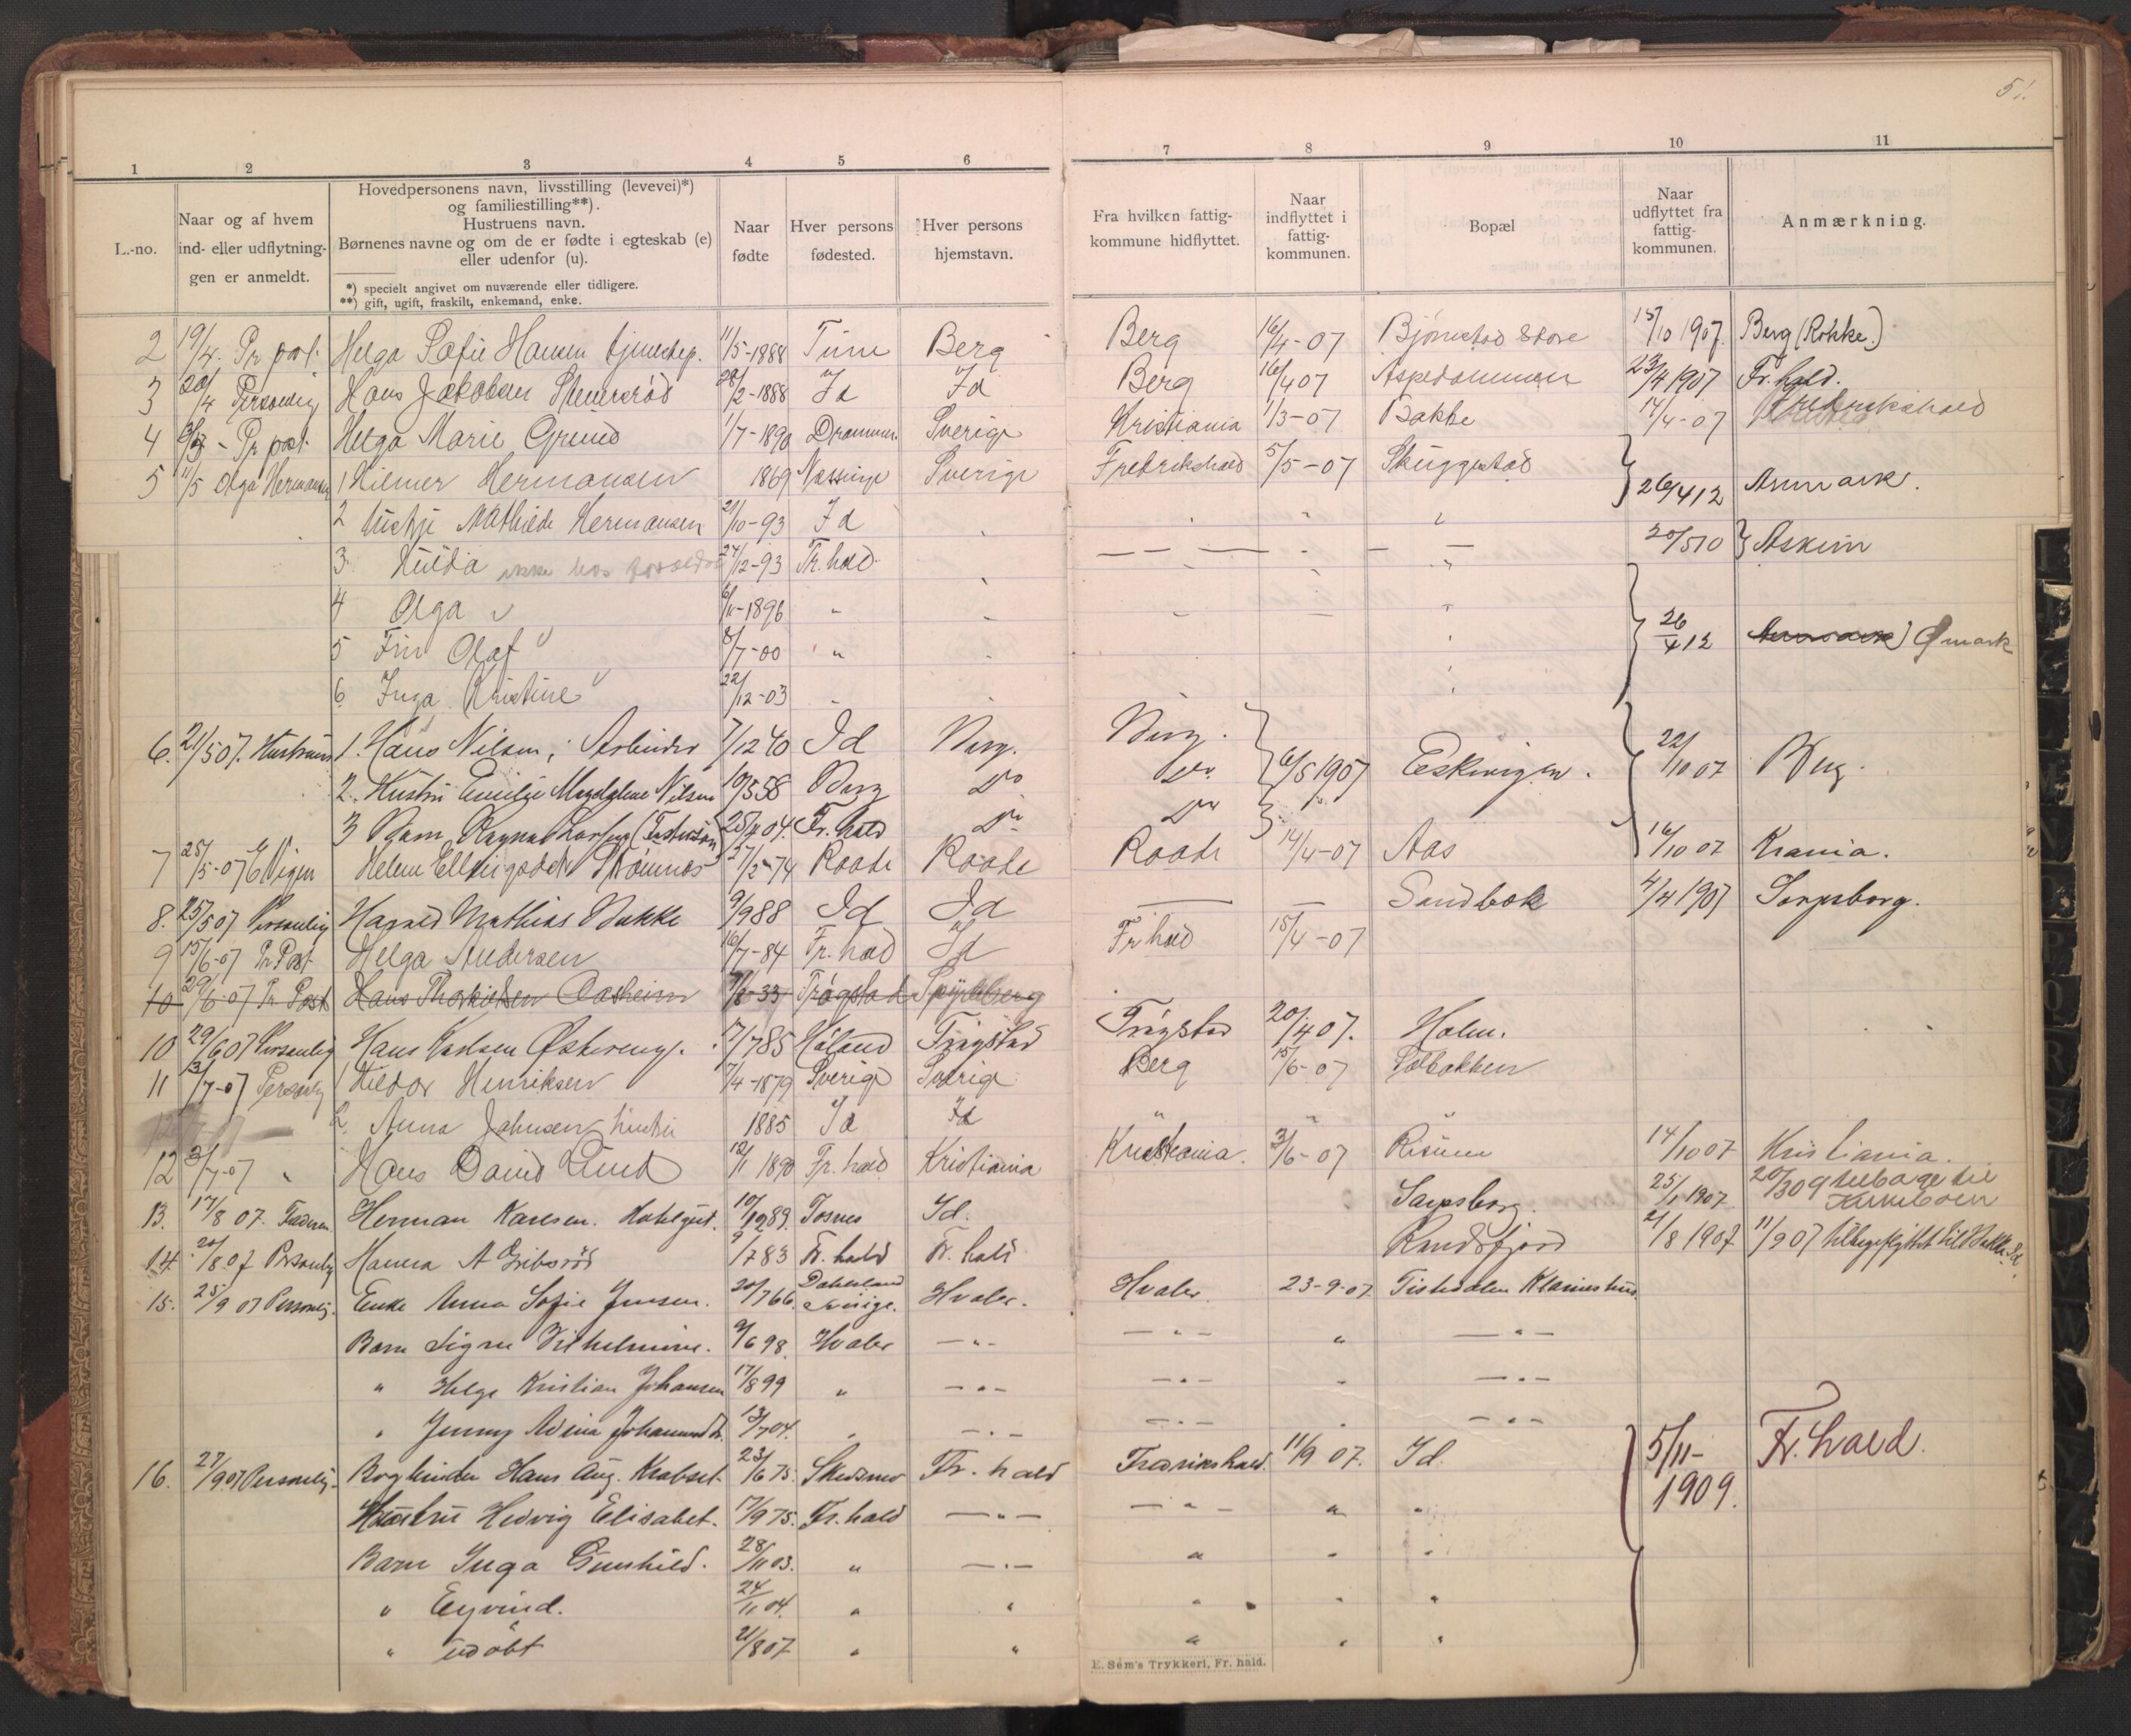 51.
1 2 3 4 5 6 7 8 9 10 11
L.-no.
Naar og af hvem
ind- eller udflytnin-
gen er anmeldt.
Hovedpersonens navn, livsstilling (levevei)*)
og familiestilling**).
Hustruens navn.
Børnenes navne og om de er fødte i egteskab (e)
eller udenfor (u).
*) specielt angivet om nuværende eller tidligere.
**) gift, ugift, fraskilt, enkemand, enke.
Naar
fødte
Hver persons
fødested.
Hver persons
hjemstavn.
Fra hvilken fattig-
kommune hidflyttet.
Naar
indflyttet i
fattig-
kommunen.
Bopæl
Naar
udflyttet fra
fattig-
kommunen.
Anmærkning.
2 19/4. Pr post. Helga Sofie Hansen tjenestep. 11/5-1888 Tune Berg Berg 16/4-07 Bjørnstad Store 15/10 1907. Berg (Rokke.)
3 20/4 Personlig Hans Jakobsen 28/2-1888 Id Id Berg 16/4 07 Aspedammen 23/4 1907 Fr.hald.
4 Pr post Helga Marie Grund 1/7-1890 Drammen Sverige Kristiania 1/3-07 Bakke 14/4-07 Fredrikshald
5 11/5 Olga Hermansen 1 Hilmer Hermansen 1869 Sverige Fredrikshald 5/5-07 Skuggestad 26/4 12 Aremark.
2 Mathilde Hermansen 21/10-93 Id " 20/5 10 } Askim
3 Hulda ikke hos 24/12-93 Fr.hald
4 Olga " 6/11-1896 "
5 Finn Olaf " 8/7-00 " 26/4 12 Aremark) Ømark
6 Inga Kristine " 22/12-03
6. 21/5 07. Hustruen 1. Hans Nilsen, Arbeider 7/12 40 Id Berg. Berg. 6/5 1907 Eskevigen. 22/10 07 Berg.
2. Hustru Emilie Magdalene Nilsen 10/3 58 Berg Do Do
3 Barn Ragna Larsen (Fostersøn) 25/4 04. Fr. hald Do Do
7 25/5-07 E Vigen Helene Ellingsdatter Strømnes 27/2-74 Raade Raade Raade 14/4-07 Aas 16/10 07 Krania.
8. 25/5 07 Personlig Harald Mathias Bakke 9/9 88 Id Id — — Sandbæk 4/4 1907 Sarpsborg.
9 15/6-07 Pr Post Helga Andersen 16/7-84 Fr.hald Id Fr hald 15/4-07
10 29/6-07 Pr Post Hans Aasheim 33 Trøgstad Spydeberg
10 29/6 07 Personlig Hans Karlsen Østereng. 17/7 85 Høland Trøgstad Trøgstad 20/4 07. Holm.
11 3/7-07 Personlig 1 Hildor Henriksen 7/4-1879 Sverige Sverige Berg 15/6-07 Solbakken
2. Anna Johnsen hustru 1885 Id Id " "
12 3/7-07 " Hans David Lund 12/11 1890 Fr.hald Kristiania Kristiania. 3/6-07 Risum 14/10 07 Kristiania.
13. 17/8 07. Faderen Herman Karlsen. 10/12 89. Tosnes Id. Sarpsborg. 25/1 1907. 20/3 09 tilbage til
14. 20/8 07 Personlig Hanna A 9/7 83 Fr. hald Fr. hald Randsfjord 21/8 1907 11/9 07 tilbageflyttet til Bakke Id.
15. 25/9 07 Personlig. Enke Anna Sofie Jensen. 20/7 66. Dalsland Sverige. Hvaler. Hvaler. 23-9-07. Tistedalen
Barn Signe Vilhelmine. 9/6 98. Hvaler — " — — " — " — " —
" Helge Kristian Johansen 17/8 99 " — " — — " — " — " —
" Jenny Johannesd. 13/7 04. " — " — — " — " — " —
16. 27/9 07 Personlig. Bogbinder Hans Aug. Krabset. 23/6 75. Skedsmo Fr. hald Fredrikshald. 11/9 07. Id. 5/11-1909. Fr. hald.
Hustru Hedvig Elisabet. 17/9 75. Fr. hald — " — — " — " "
Barn Inga Gunhild. 28/11 03. " — " — " " "
" Eyvind. 24/11 04. " " " " "
" udøbt 21/8 07 " " " " "
E. Sem's Trykkeri, Fr. hald.